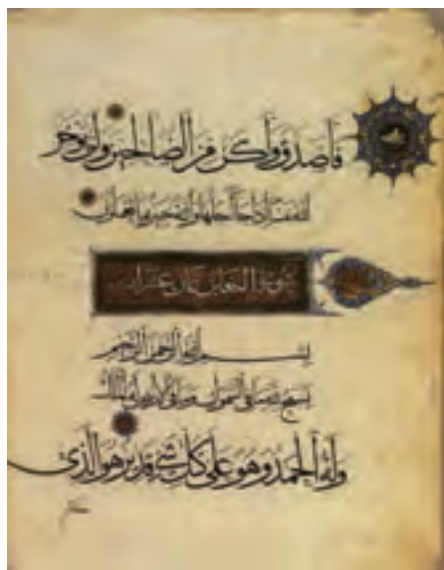 فاصدق واكن من الصالحين ولن يوخر
الله نفسا اذا جا اجلها والله خبير بما تعملون
سورة التغابن ثمان عشر
بسم الله الرحمن الرحيم
يسبح لله ما في السموات وما في الارض له الملك
وله الحمد وهو على كل شي قدير هو الذي